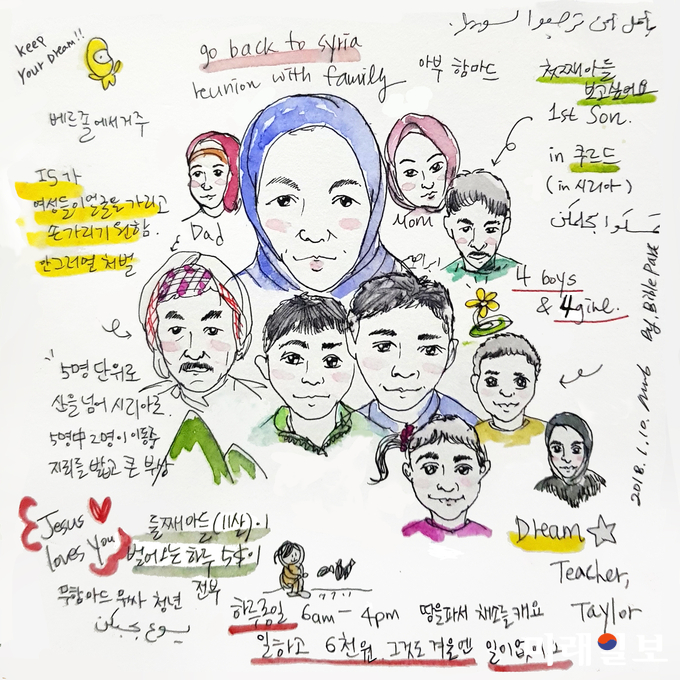 Keep
Your Dream!!
go back to Syria
reunion with family
아부 함마드
첫째아들
보고싶어요
1st Son.
in 쿠르드
(in 시리아)
베르쯜에서거주
IS가
여성들이얼굴을 가리고
손가리기 원함.
안그러면 처벌
Dad
Mom
4 boys
& 4 girl.
5명 단위로
산을 넘어 시리아로.
5명中 2명이 이동中
지뢰를 밟고 큰 부상
2018. 1. 10.
Jesus
loves You
둘째아들(11살)이
벌어오는 하루 5$이
전부
무함마드 무사 청년
Dream
Teacher,
Taylor
하루종일 6am - 4pm 땅을파서 채소를 캐요
일하고 6천원. 그것도 겨울엔 일이없어요
미래일보